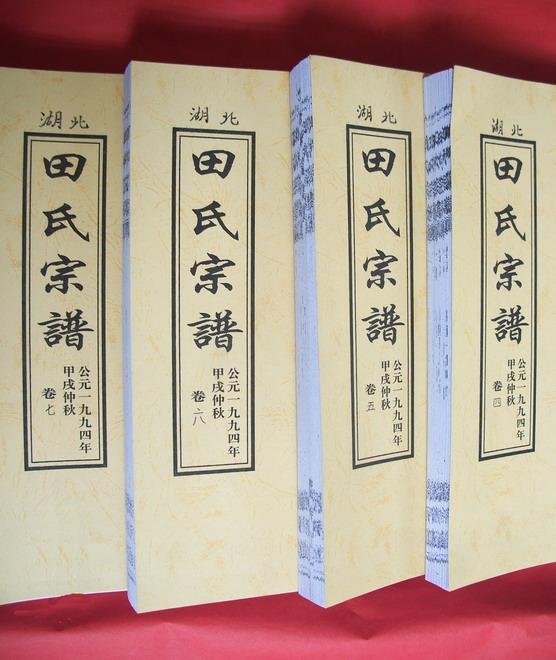 湖北
田氏宗譜
公元一九九四年
甲戌仲秋
卷七
湖北
田氏宗譜
公元一九九四年
甲戌仲秋
卷六
湖北
田氏宗譜
公元一九九四年
甲戌仲秋
卷五
湖北
田氏宗譜
公元一九九四年
甲戌仲秋
卷四